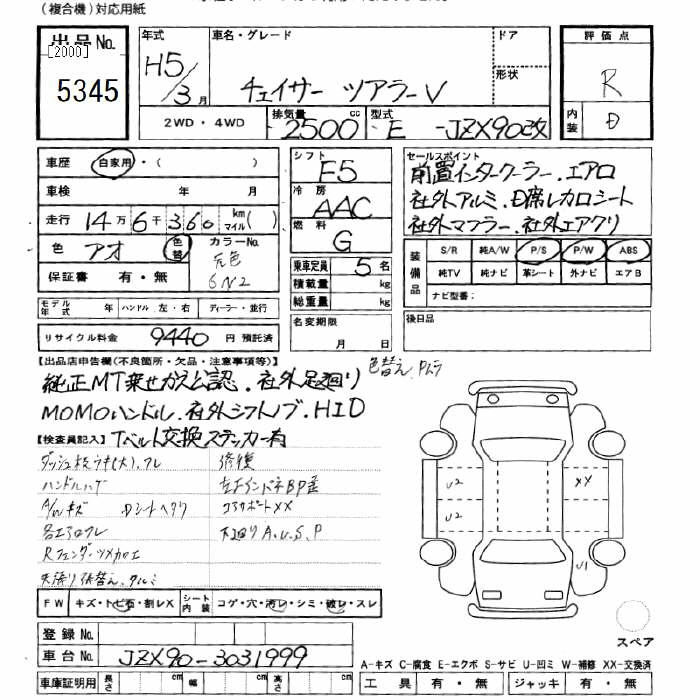 (複合機)対応用紙
出品No.
[2000]
5345
年式
H5/3月
車名・グレード
チェイサー ツアラーV
ドア
形状
評価点
R
内装
D
2WD・4WD
排気量
2500 cc
型式
E -JZX90改
車歴
自家用・( )
車検 年 月
走行 14万6千360 km マイル( )
色 アオ 色替
カラーNo.
元色
6N2
保証書 有・無
シフト
F5
冷房
AAC
燃料
G
乗車定員 5名
積載量 kg
総重量 kg
セールスポイント
前置インタークーラー.エアロ
社外アルミ.D席レカロシート
社外マフラー.社外エアクリ
装備品
S/R 純A/W P/S P/W ABS
純TV 純ナビ 革シート 外ナビ エアB
ナビ型番:
モデル年式 年 ハンドル 左・右 ディーラー・並行
名変期限
月 日
後日品
リサイクル料金 9440 円 預託済
【出品店申告欄(不良箇所・欠品・注意事項等)】
色替え.Pムラ
純正MT乗せかえ公認.社外足廻り
MOMOハンドル.社外シフトノブ.HID
【検査員記入】 Tベルト交換ステッカー有
ダッシュ板ウキ(大).ワレ 修復
ハンドルハゲ
A/Wキズ Dシートヘタリ コアサポートXX
各エアロワレ 下廻りA.U.S.P
Rフェンダーツメカエ
天張り張替え.クルミ
U2
U2
XX
U1
FW キズ・トビ石・割レX
シート内装 コゲ・穴・汚レ・シミ・破レ・スレ
登録No.
車台No. JZX90-3031999
車庫証明用 長さ cm 幅 cm 高さ cm
スペア
A-キズ C-腐食 E-エクボ S-サビ U-凹ミ W-補修 XX-交換済
工具 有・無 ジャッキ 有・無